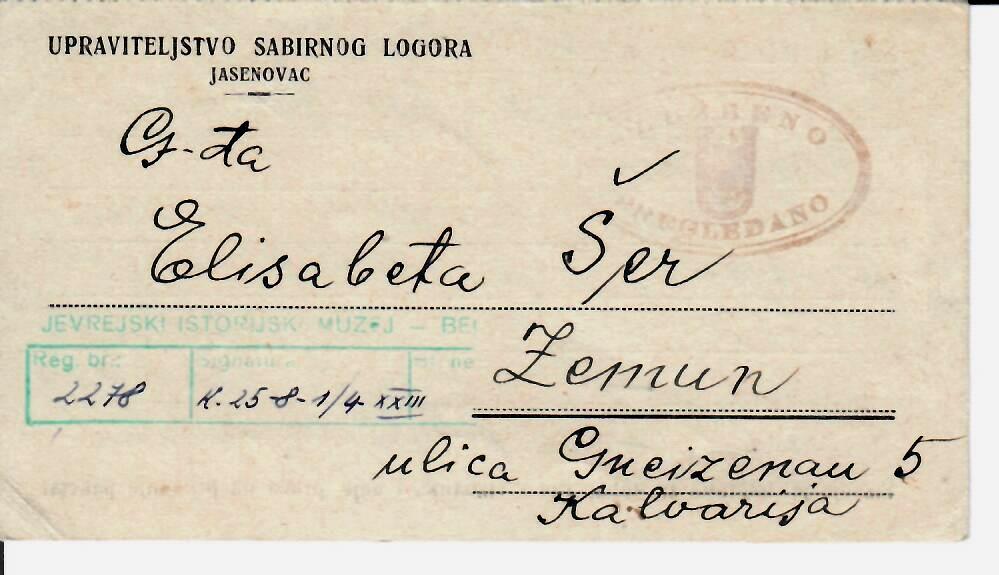 UPRAVITELJSTVO SABIRNOG LOGORA
JASENOVAC
PREGLEDANO
G-đa
Elisabeta Šer
JEVREJSKI ISTORIJSKI MUZEJ – BE
Reg. br.: Signatura
2278 K. 25-8-1/4 XXIII
Zemun
ulica Gneizenau 5
Kalvarija